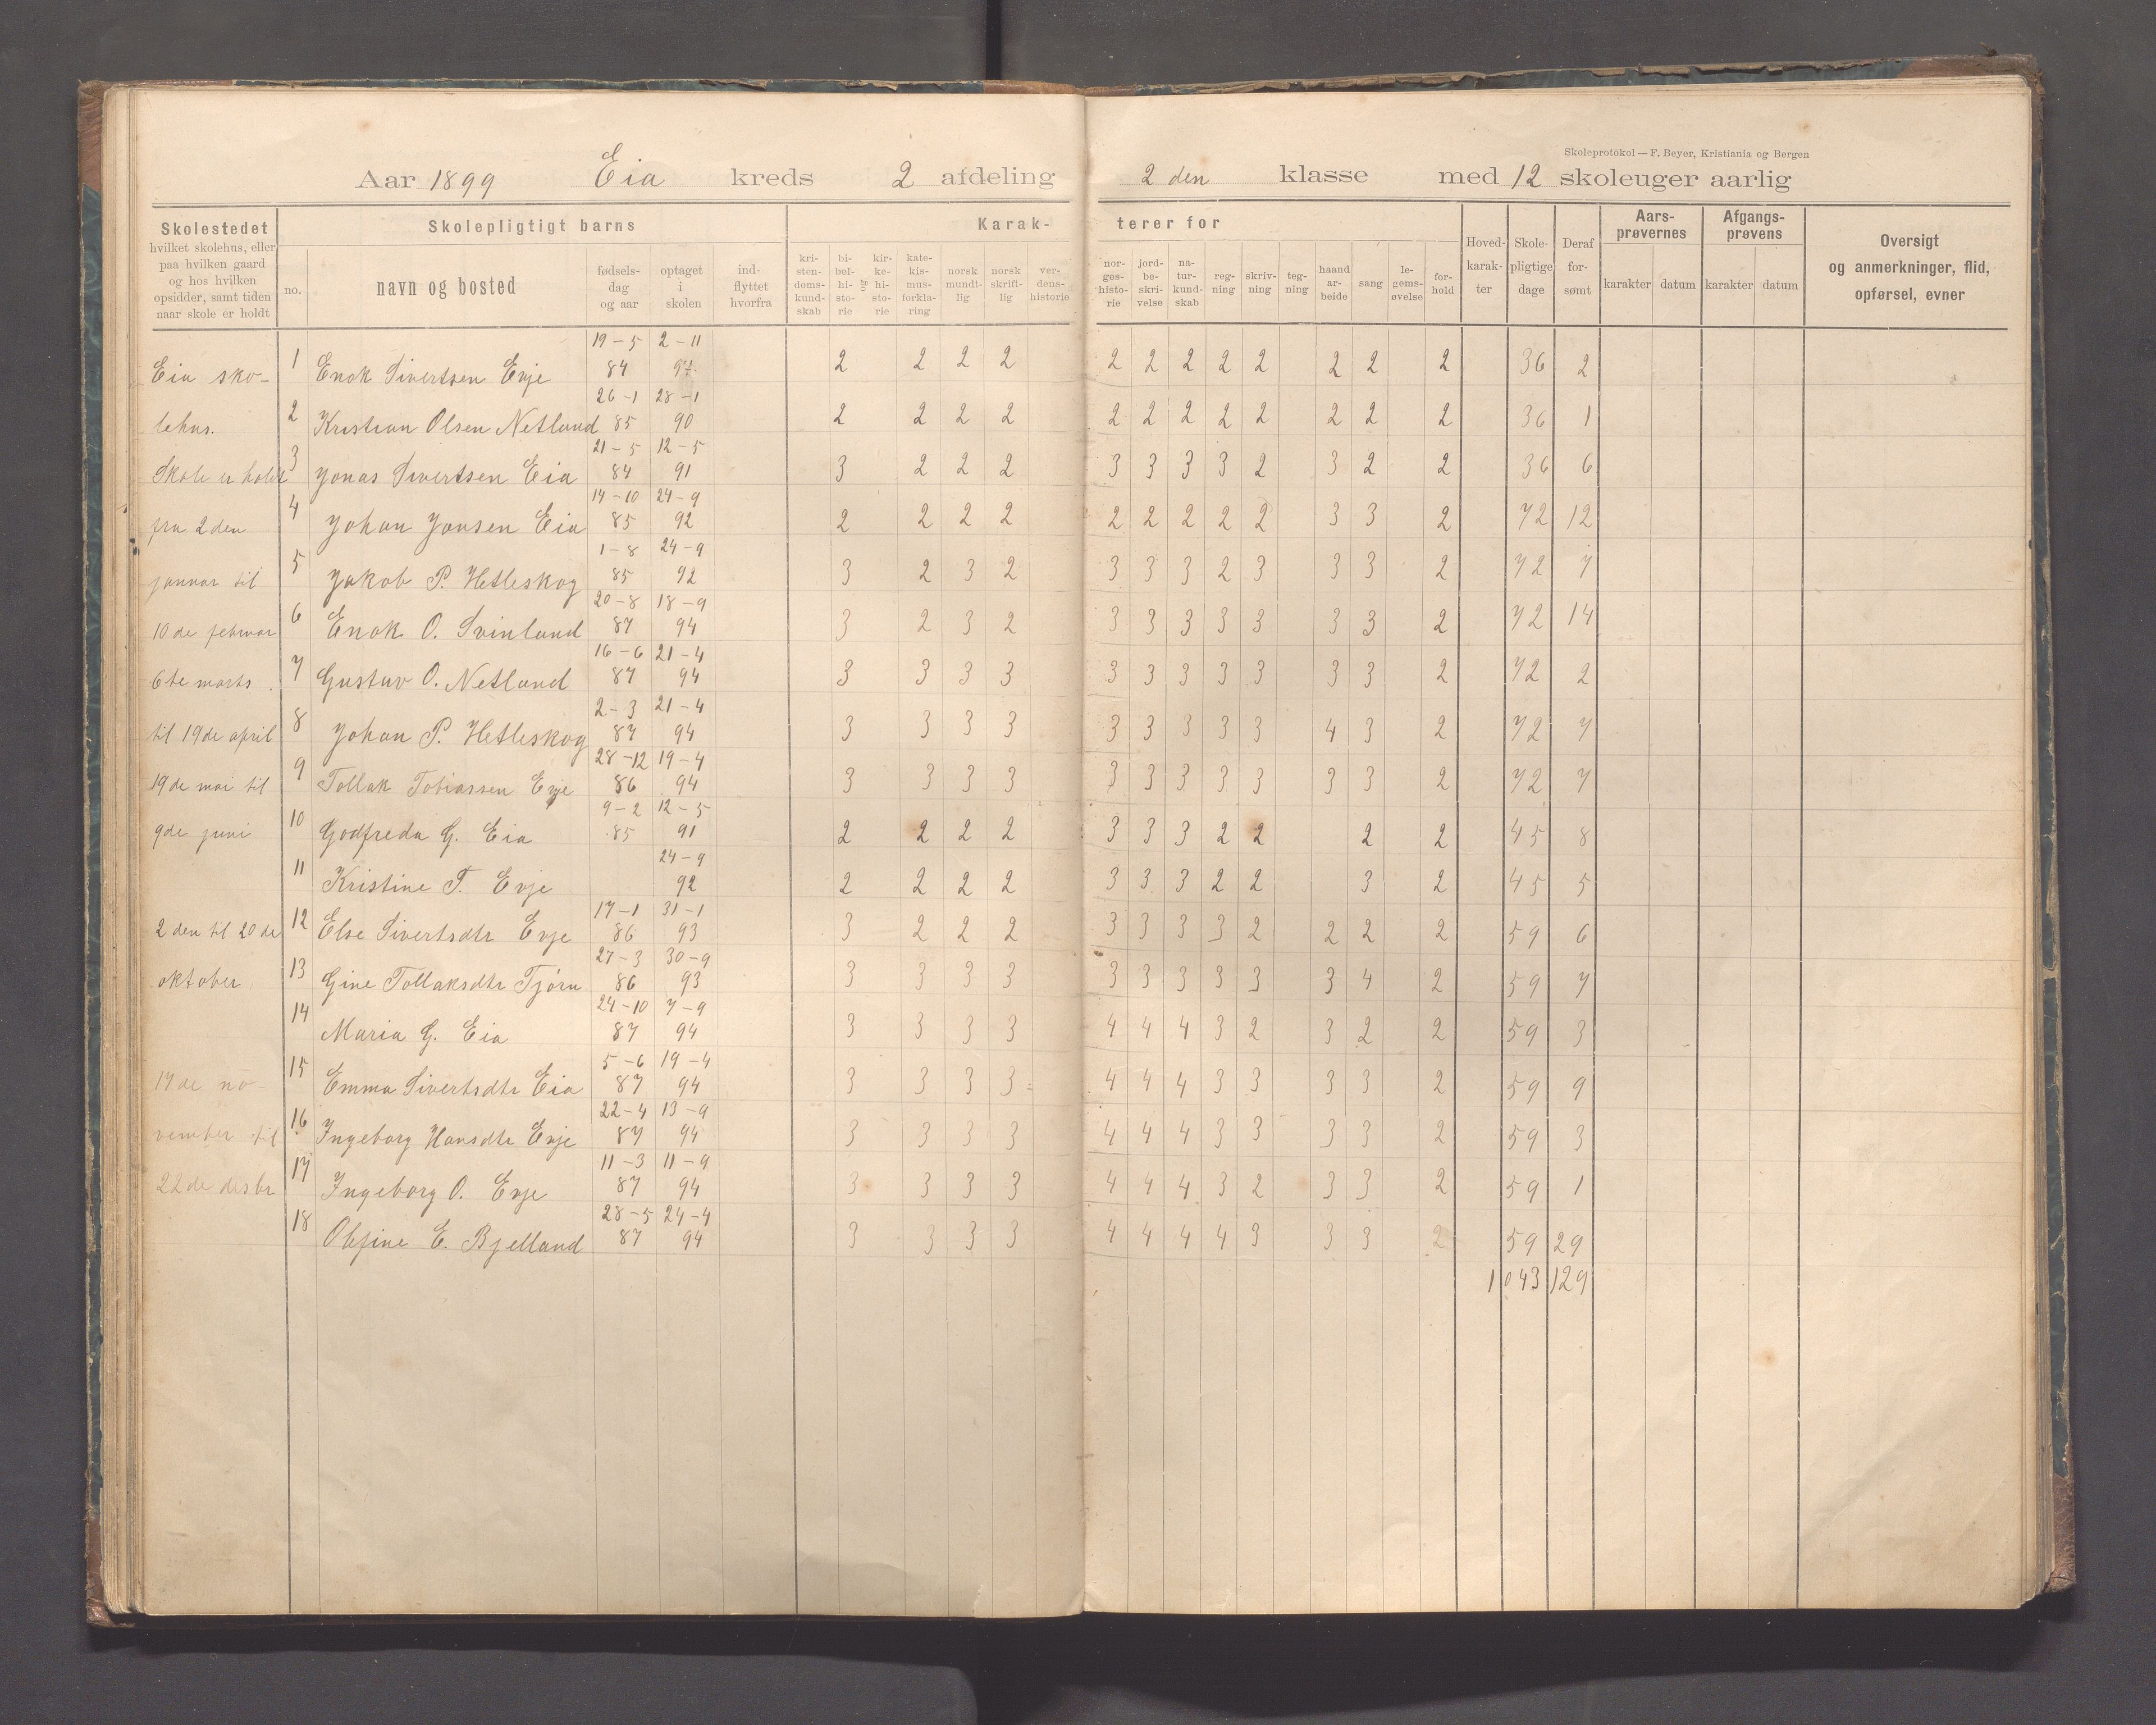 Skoleprotokol — F. Beyer, Kristiania og Bergen
Aar 1899 Eia kreds 2 afdeling 2den klasse med 12 skoleuger aarlig
Skolestedet hvilket skolehus, eller paa hvilken gaard og hos hvilken opsidder, samt tiden naar skole er holdt
Skolepligtigt barns
no. navn og bosted fødsels-dag og aar optaget i skolen ind-flyttet hvorfra
Karak-terer for
kri-sten-doms-kund-skab bi-bel-hi-sto-rie og kir-ke-hi-sto-rie kate-kis-mus-forkla-ring norsk mundt-lig norsk skrift-lig ver-dens-historie nor-ges-histo-rie jord-be-skri-velse na-tur-kund-skab reg-ning skriv-ning teg-ning haand ar-beide sang le-gems-øvelse for-hold
Hoved-karak-ter Skole-pligtige dage Deraf for-sømt
Aars-prøvernes karakter datum Afgangs-prøvens karakter datum
Oversigt og anmerkninger, flid, opførsel, evner
Eia sko- 1 Enok Sivertsen Evje 19-5 84 2-11 2 2 2 2 2 2 2 2 2 2 2 2 36 2
lehus. 2 Kristian Olsen Netland 26-1 85 28-1 90 2 2 2 2 2 2 2 2 2 2 2 2 36 1
Skole er holdt 3 Jonas Sivertsen Eia 21-5 84 12-5 91 3 2 2 2 3 3 3 3 2 3 2 2 36 6
fra 2den 4 Johan Jonsen Eia 14-10 85 24-9 92 2 2 2 2 2 2 2 2 2 3 3 2 72 12
januar til 5 Jakob P. Hetleskog 1-8 85 24-9 92 3 2 3 2 3 3 3 2 3 3 3 2 72 7
10de februar 6 Enok O. Svinland 20-8 87 18-9 94 3 2 3 2 3 3 3 3 3 3 3 2 72 14
6te marts 7 Gustav O. Netland 16-6 87 21-4 94 3 3 3 3 3 3 3 3 3 3 3 2 72 2
til 19de april 8 Johan P. Hetleskog 2-3 87 21-4 94 3 3 3 3 3 3 3 3 3 4 3 2 72 7
19de mai til 9 Tollak Tobiassen Evje 28-12 86 19-4 94 3 3 3 3 3 3 3 3 3 3 3 2 72 7
9de juni 10 Godfreda G. Eia 9-2 85 12-5 91 2 2 2 2 3 3 3 2 2 2 2 45 8
11 Kristine T. Evje 24-9 92 2 2 2 2 3 3 3 2 2 3 2 45 5
2den til 20de 12 Else Sivertsdtr Evje 17-1 86 31-1 93 3 2 2 2 3 3 3 3 2 2 2 2 59 6
oktober 13 Gine Tollaksdtr Tjörn 27-3 86 30-9 93 3 3 3 3 3 3 3 3 3 3 4 2 59 7
14 Maria G. Eia 24-10 87 7-9 94 3 3 3 3 4 4 4 3 2 3 2 2 59 3
17de no- 15 Emma Sivertsdtr Eia 5-6 87 19-4 94 3 3 3 3 4 4 4 3 3 3 3 2 59 9
vember til 16 Ingeborg Hansdtr Evje 22-4 87 13-9 94 3 3 3 3 4 4 4 3 3 3 3 2 59 3
22de desbr 17 Ingeborg O. Evje 11-3 87 11-9 94 3 3 3 3 4 4 4 3 2 3 3 2 59 1
18 E. Bjelland 28-5 87 24-4 94 3 3 3 3 4 4 4 4 3 3 3 2 59 29
1043 129